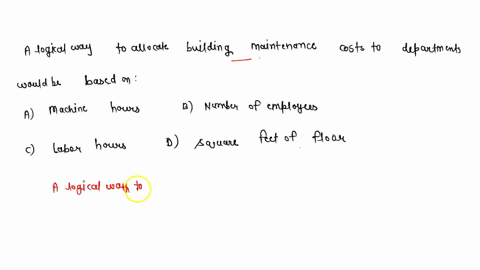 A logical way to allocate building maintenance costs to departments
would be based on:
A) Machine hours B) Number of employees
C) Labor hours D) Square feet of floor
A logical way to